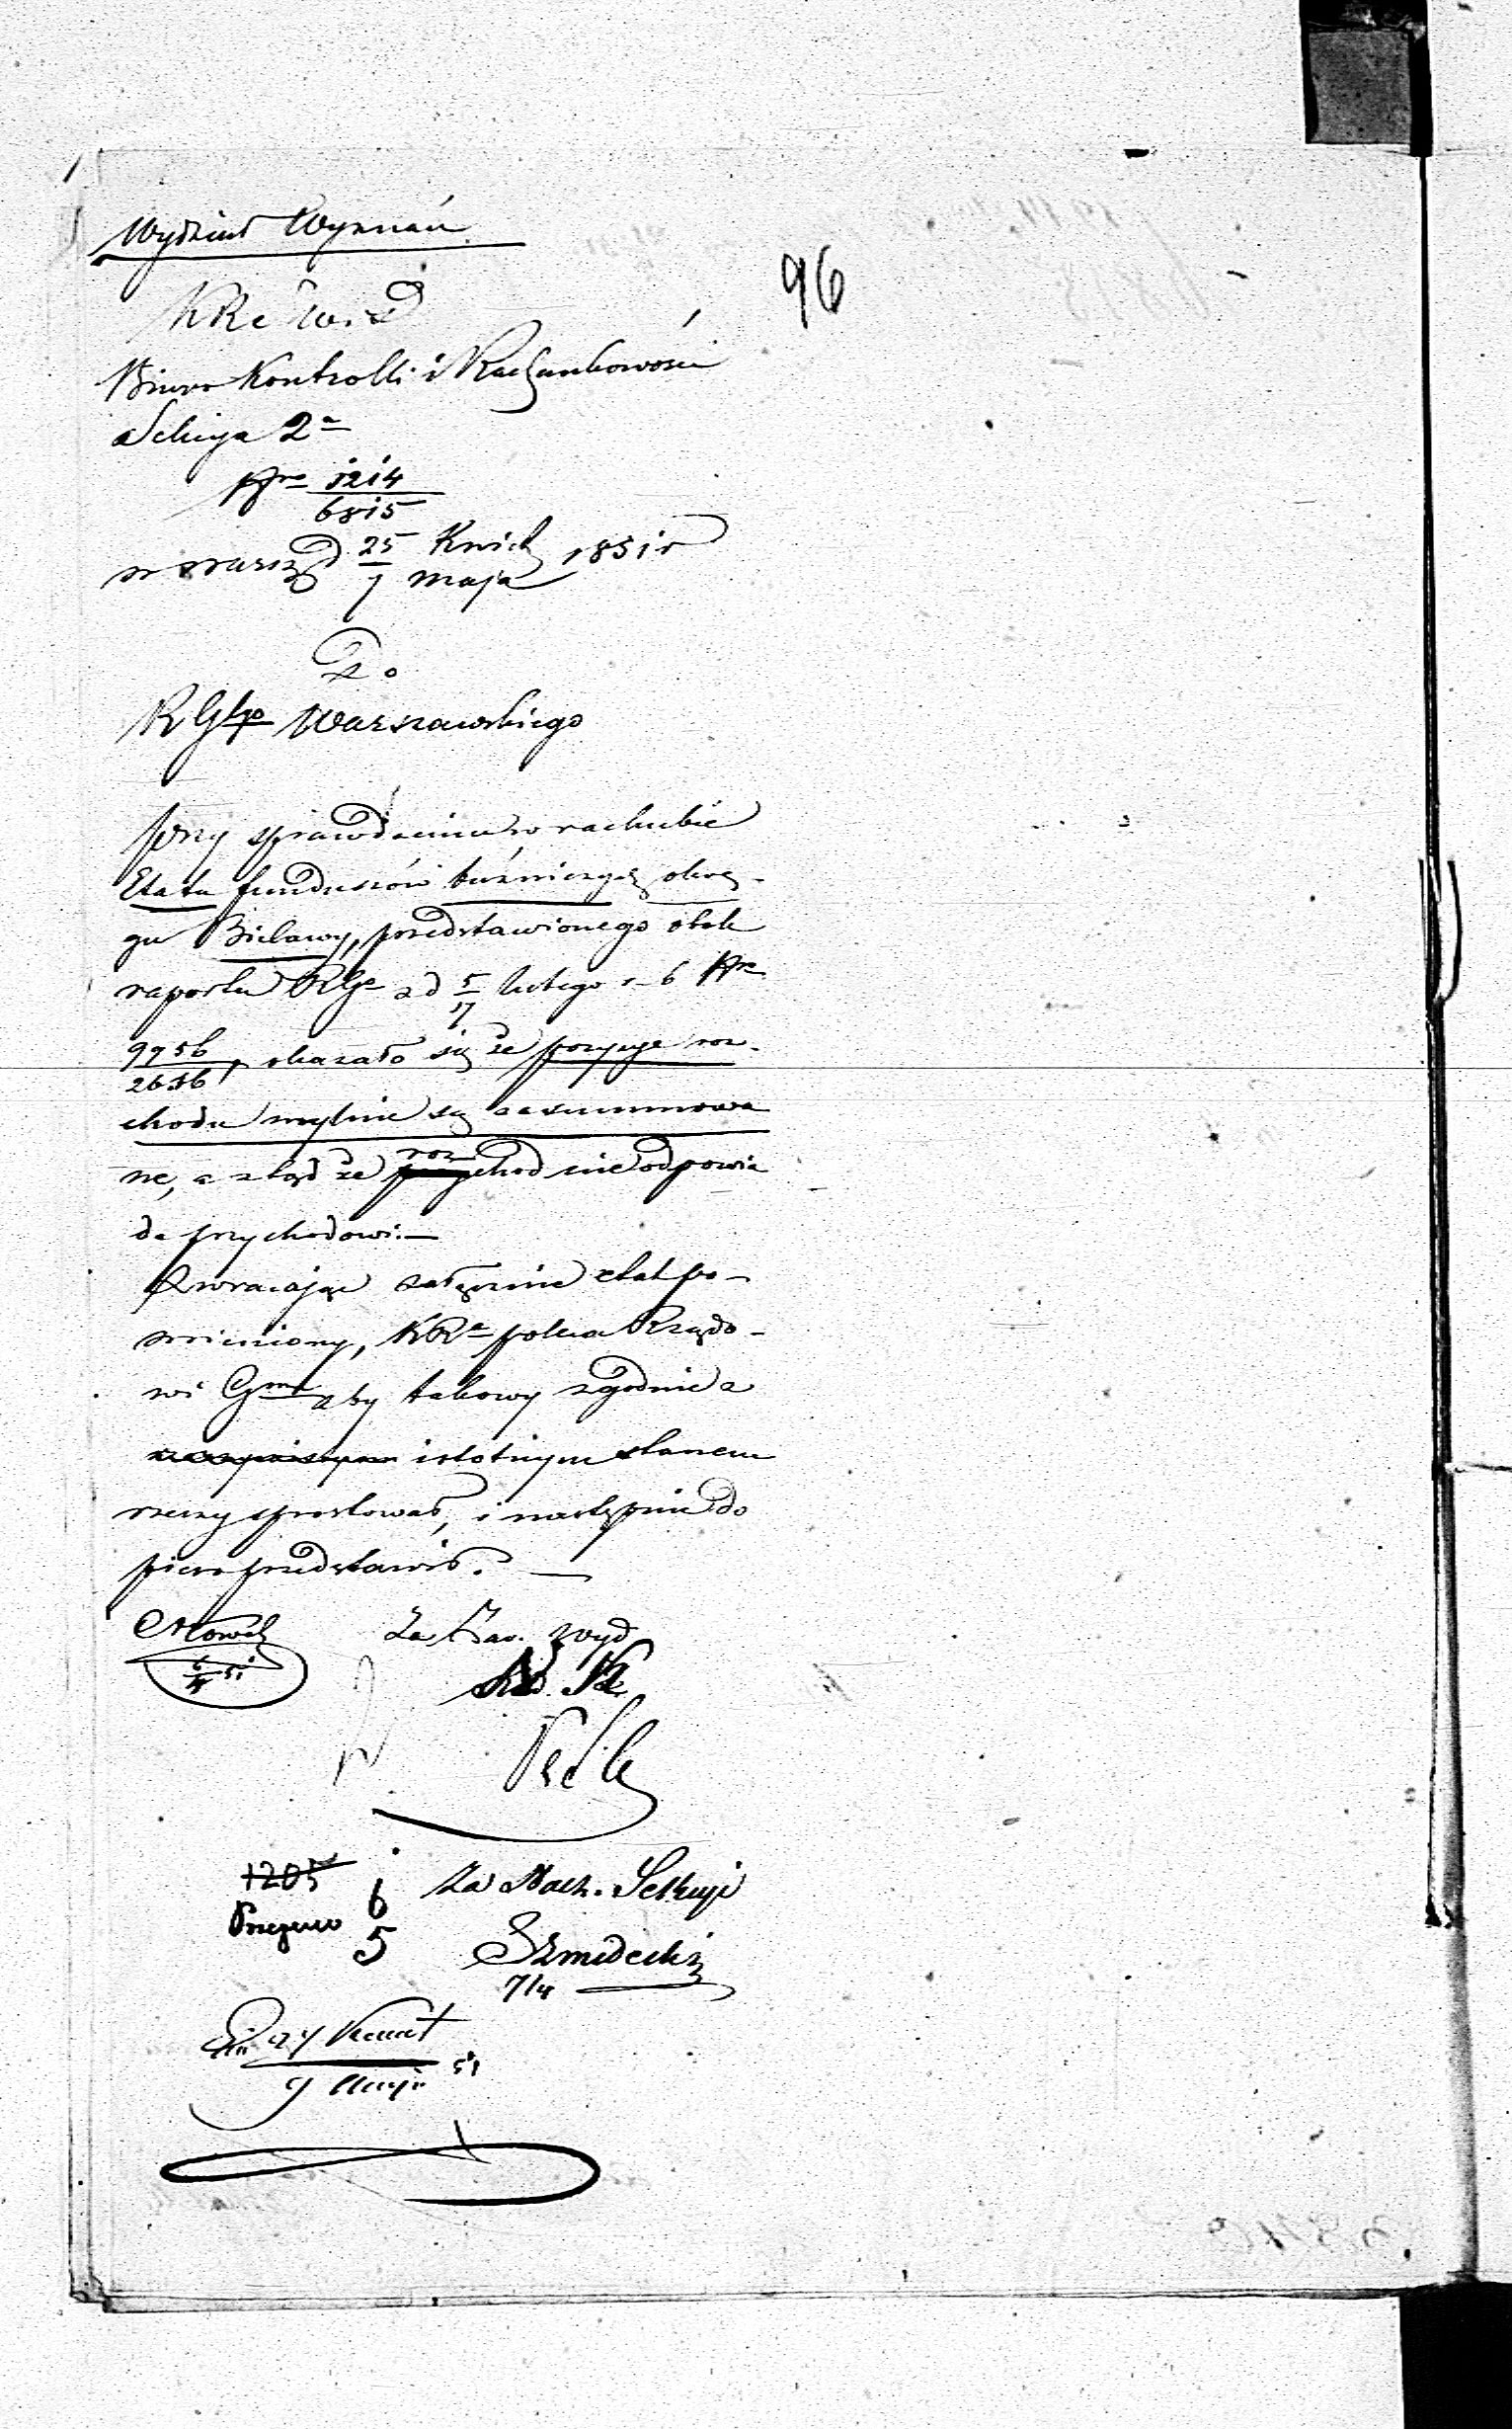 Wydział Wyznań
96
KRS W. i D
Biuro Kontrolli i Rachunkowości
Sekcya 2a
Nro 1214
6815
w Warsz d 25 Kwiet 1851 r
7 Maja
Do
R Ggo Warszawskiego
przy sprawdzeniu w rachubie
Etatu funduszów bużniczych okrę-
gu Bielawy, przedstawionego obok
raportu RGo z d 5/17 Lutego r. b Nro
9956
2636, okazało się że pozycye roz-
chodu mylnie są zasummowa
ne, a ztąd że rozchod nie odpowia
da przychodowi.—
Zwracając załącznie etat po-
mieniony, KRa poleca Rządo-
wi Gmu aby takowy zgodnie z
istotnym stanem
rzeczy sprostował, i następnie do
piero przedstawił. —
Za
Rad. K
1205
6
5
Za Nach. Sekcyi
Szmidecki
7/4
9 Maja 51